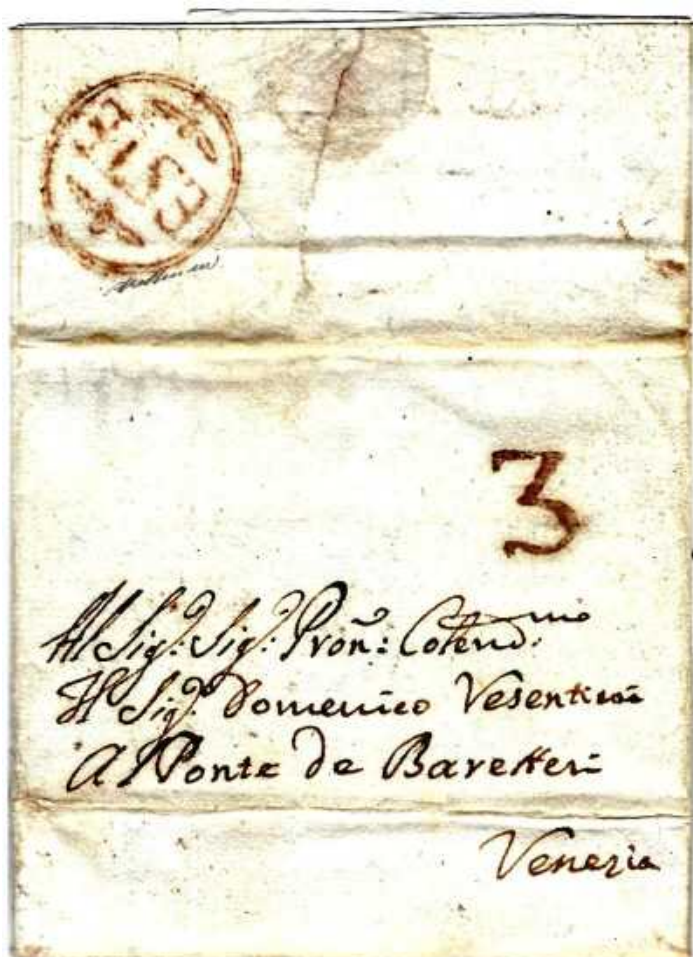 3
Al Sig.r Sig.r Pron: Colend.mo
Il Sig.r Domenico Vesentini
Al Ponte de Baretteri
Venezia